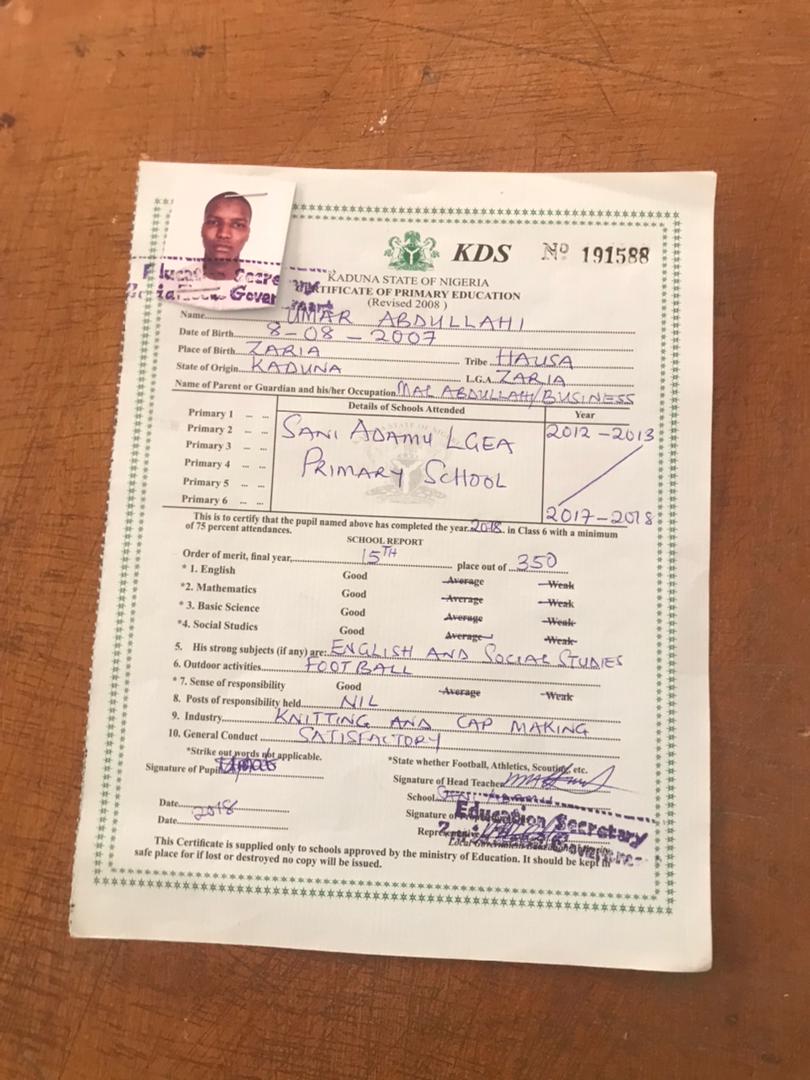 KDS Nº 191588
KADUNA STATE OF NIGERIA
CERTIFICATE OF PRIMARY EDUCATION
(Revised 2008 )
Name UMAR ABDULLAHI
Date of Birth 8-08-2007
Place of Birth ZARIA Tribe HAUSA
State of Origin KADUNA L.G.A. ZARIA
Name of Parent or Guardian and his/her Occupation MAL ABDULLAHI/BUSINESS
Details of Schools Attended Year
Primary 1
Primary 2 SANI ADAMU LGEA 2012-2013
Primary 3
Primary 4 PRIMARY SCHOOL
Primary 5
Primary 6 2017-2018
This is to certify that the pupil named above has completed the year 2018 in Class 6 with a minimum
of 75 percent attendances.
SCHOOL REPORT
Order of merit, final year, 15TH place out of 350
* 1. English Good Average Weak
*2. Mathematics Good Average Weak
* 3. Basic Science Good Average Weak
*4. Social Studies Good Average Weak
5. His strong subjects (if any) are: ENGLISH AND SOCIAL STUDIES
6. Outdoor activities FOOTBALL
* 7. Sense of responsibility Good Average Weak
8. Posts of responsibility held NIL
9. Industry KNITTING AND CAP MAKING
10. General Conduct SATISFACTORY
*Strike out words not applicable. *State whether Football, Athletics, Scouting, etc.
Signature of Pupil Signature of Head Teacher
School
Date 2018 Signature of
Education Secretary
Date
Local Government
This Certificate is supplied only to schools approved by the ministry of Education. It should be kept in
safe place for if lost or destroyed no copy will be issued.